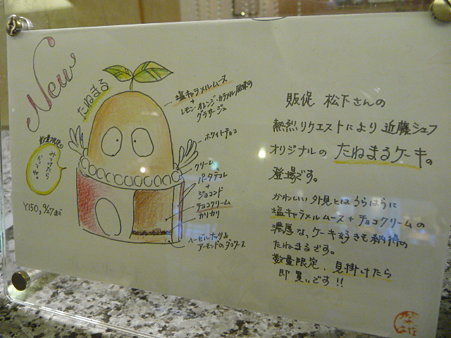 New
たねまる
塩キャラメルムース
+
レモン・オレンジ・カラメル風味の
グラサージュ
ホワイトチョコ
クリーム
パータデコレ
+
ジョコンド
チョコクリーム
カリカリ
ヘーゼルナッツ&
アーモンドのダコワーズ
数量限定
見つけたら
即
買い
販促 松下さんの
熱烈リクエストにより 近藤シェフ
オリジナルの たねまるケーキの
登場です。
かわいい外見とはうらはらに
塩キャラメルムース+チョコクリームの
濃厚な、ケーキ好きも納得の
たねまるです。
数量限定、見掛けたら
即 買いです!!